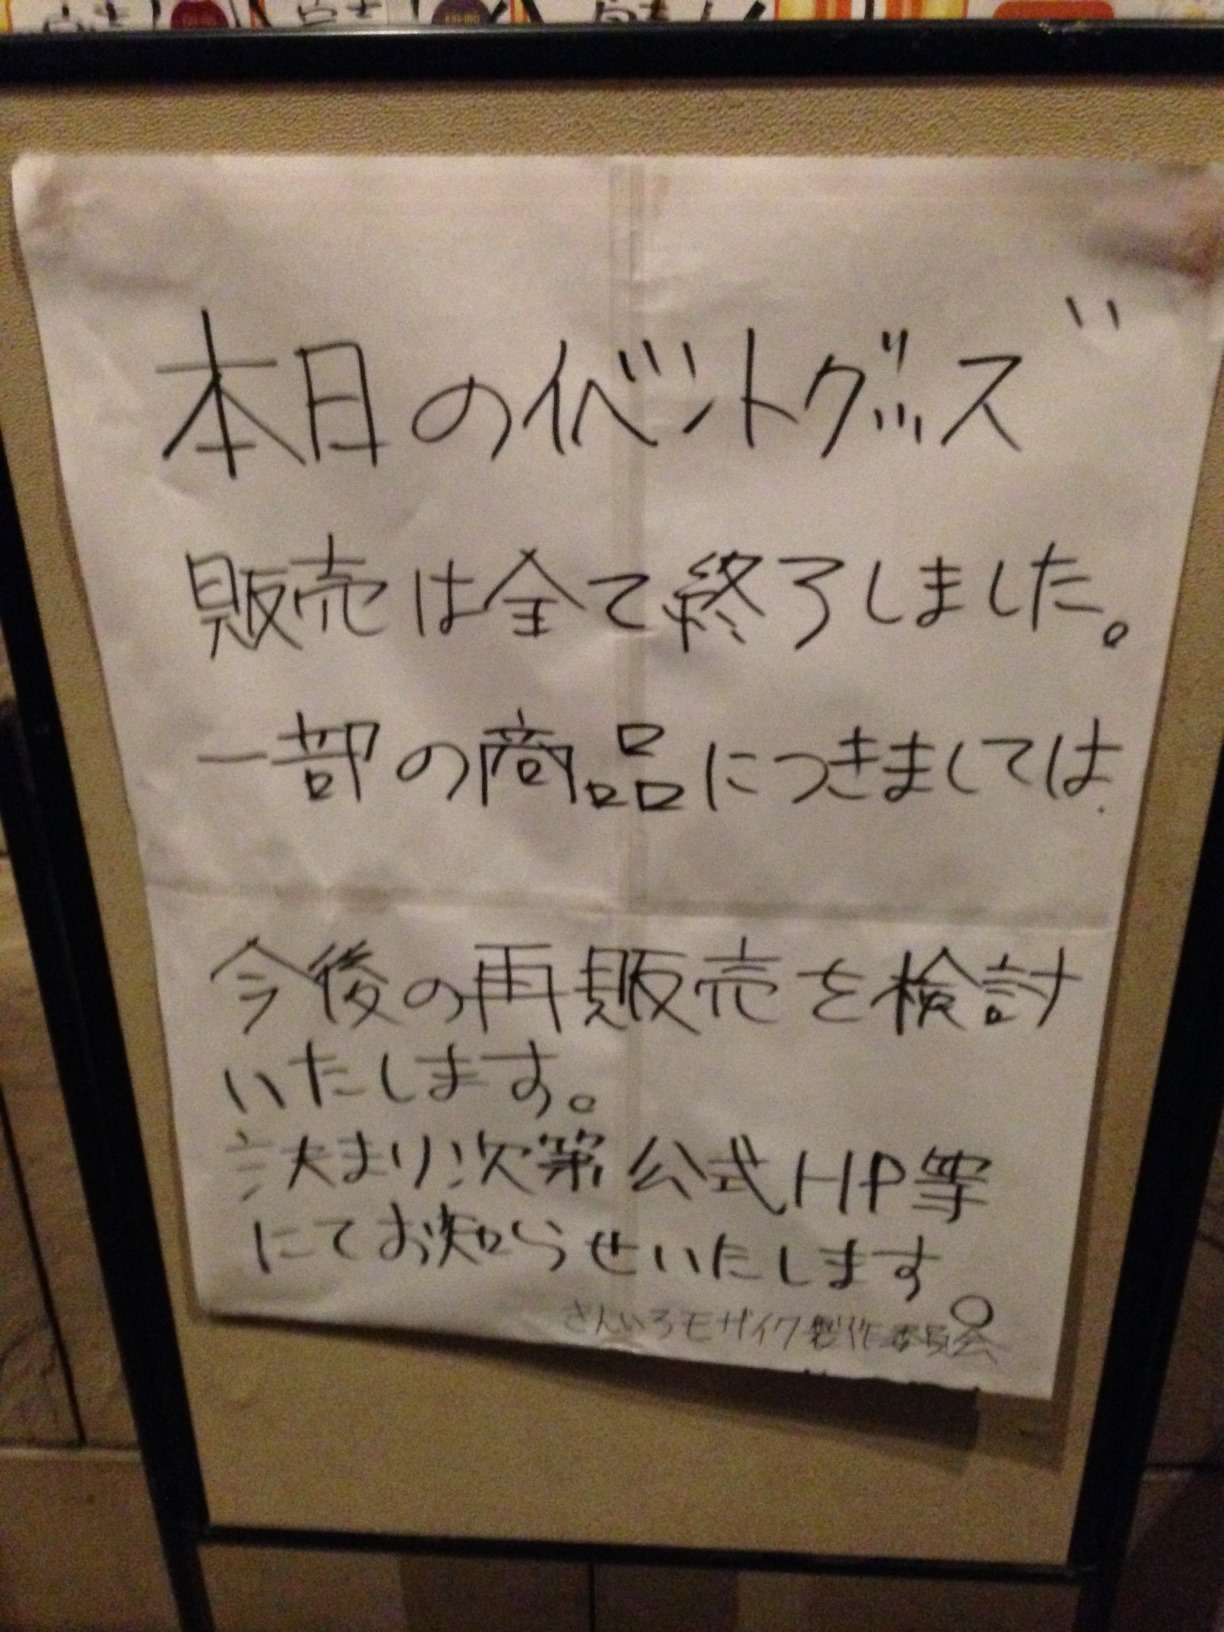 本日のイベントグッズ
販売は全て終了しました。
一部の商品につきましては
今後の再販売を検討
いたします。
決まり次第公式HP等
にてお知らせいたします。
きんいろモザイク製作委員会